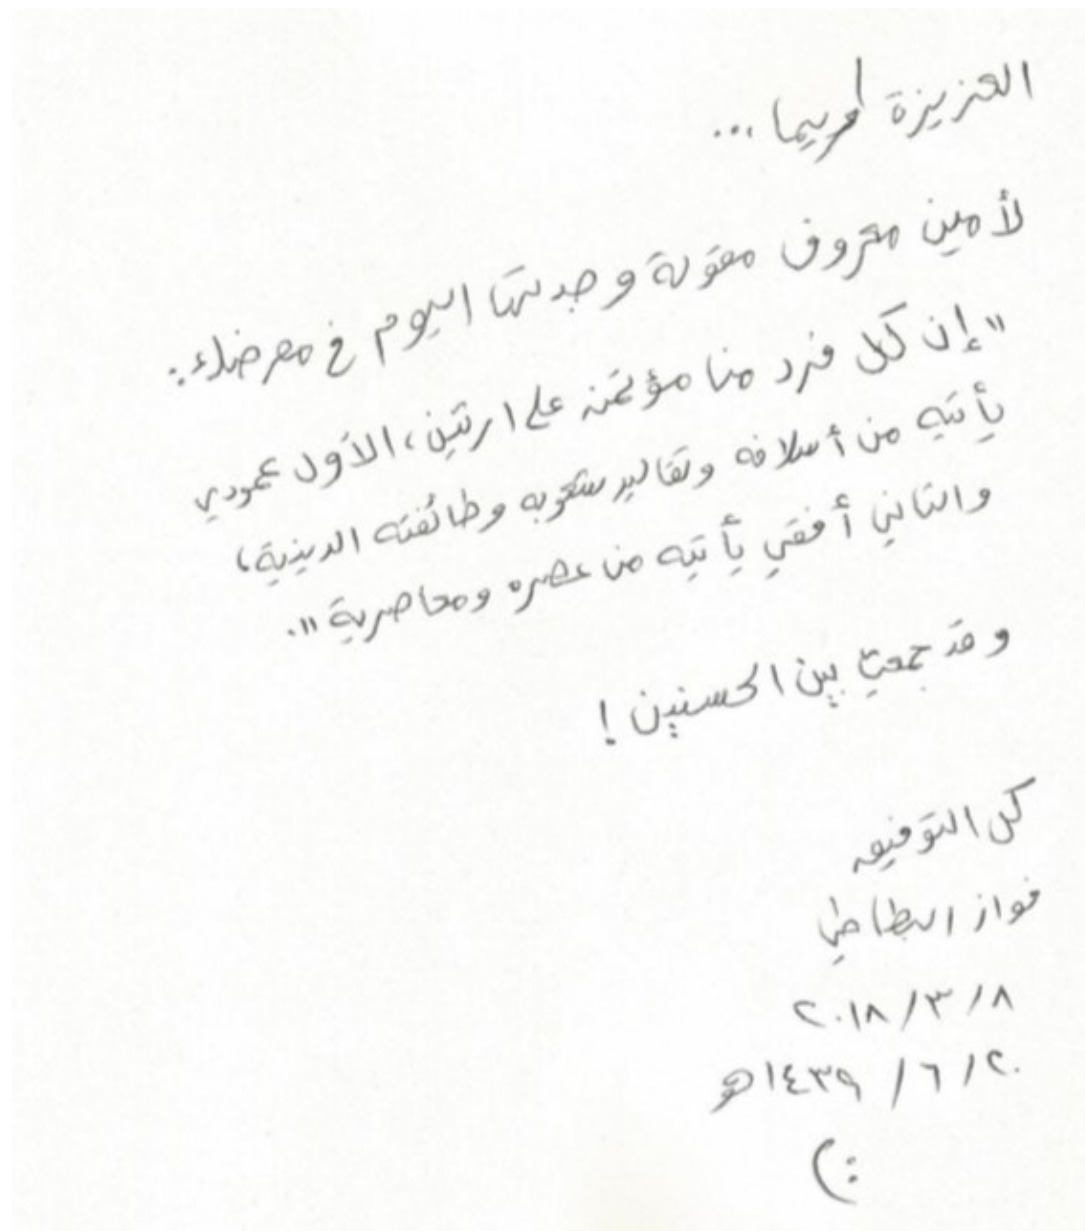 العزيزة أمريما ...
لأمين معروف مقولة وجدتها اليوم في معرضك:
"إن كل فرد منا مؤتمن على ارثين، الأول عمودي
يأتيه من أسلافه وتقاليد شعوبه وطائفته الدينية،
والثاني أفقي يأتيه من عصره ومعاصريه".
وقد جمعتِ بين الحسنيين!
كل التوفيق
فواز البطاطي
٢٠١٨/٣/٨
١٤٣٩/٦/٢٠هـ
(: